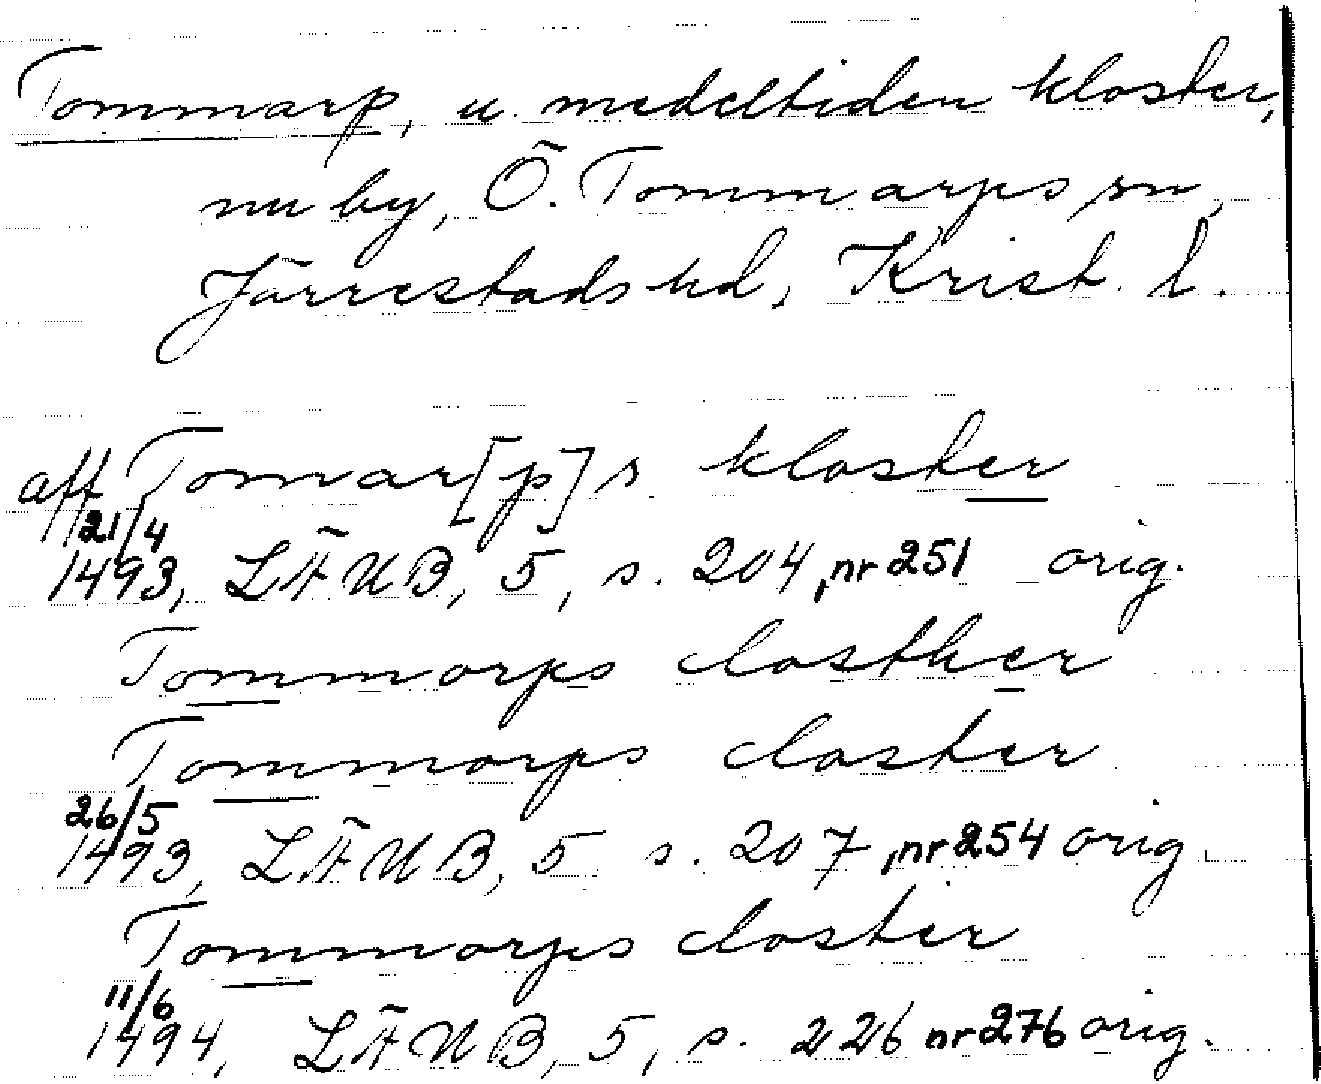 Tommarp, u. medeltiden kloster,
nu by, Ö. Tommarps sn,
Järrestads hd, Krist. l.
aff Tomar[p]s kloster
21/4
1493, LÄUB, 5, s. 204, nr 251 orig.
Tommorps closther
Tommorps closter
26/5
1493, LÄUB, 5 s. 207, nr 254 orig.
Tommorps closter
11/6
1494, LÄUB, 5, s. 226 nr 276 orig.